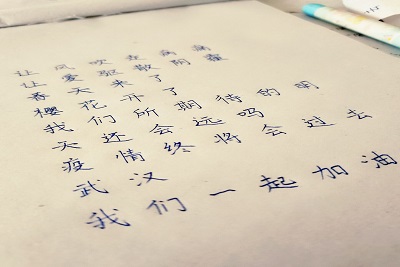 让风吹走病痛
让爱驱散阴霾
春天来了
樱花开了
我们所期待的明
天还会远吗
疫情终将会过去
武汉
我们一起加油